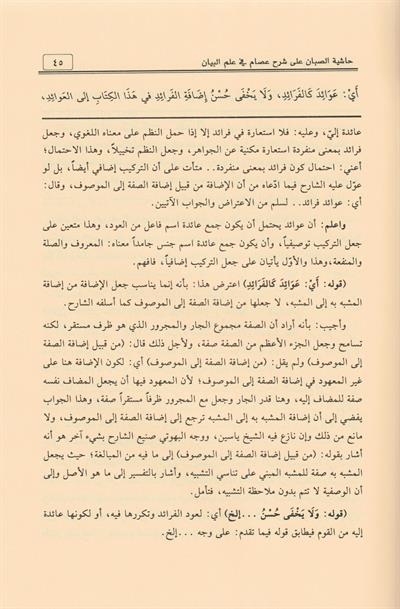 حاشية الصبان على شرح عصام في علم البيان
٤٥
أَيْ: عَوَائِدَ كَالفَرَائِدِ، وَلَا يَخْفَى حُسْنُ إِضَافَةِ الفَرَائِدِ في هَذَا الكِتَابِ إلى العَوائِدِ،
عائدة إليّ، وعليه: فلا استعارة في فرائد إلا إذا حمل النظم على معناه اللغوي، وجعل
فرائد بمعنى منفردة استعارة مكنية عن الجواهر، وجعل النظم تخييلاً، وهذا الاحتمال؛
أعني: احتمال كون فرائد بمعنى منفردة.. متأت على أن التركيب إضافي أيضاً، بل لو
عوّل عليه الشارح فيما ادّعاه من أن الإضافة من قبيل إضافة الصفة إلى الموصوف، وقال:
أي: عوائد فرائد.. لسلم من الاعتراض والجواب الآتيين.
واعلم: أن عوائد يحتمل أن يكون جمع عائدة اسم فاعل من العود، وهذا متعين على
جعل التركيب توصيفياً، وأن يكون جمع عائدة اسم جنس جامداً معناه: المعروف والصلة
والمنفعة،وهذا والأوّل يأتيان على جعل التركيب إضافياً، فافهم.
(قوله: أَيْ: عَوَائِدَ كَالفَرَائِدِ) اعترض هذا: بأنه إنما يناسب جعل الإضافة من إضافة
المشبه به إلى المشبه، لا جعلها من إضافة الصفة إلى الموصوف كما أسلفه الشارح.
وأجيب: بأنه أراد أن الصفة مجموع الجار والمجرور الذي هو ظرف مستقر، لكنه
تسامح وجعل الجزء الأعظم من الصفة صفة، ولأجل ذلك قال: (من قبيل إضافة الصفة
إلى الموصوف) ولم يقل: (من إضافة الصفة إلى الموصوف) أي: لكون الإضافة هنا على
غير المعهود في إضافة الصفة إلى الموصوف؛ لأن المعهود فيها أن يجعل المضاف نفسه
صفة للمضاف إليه، وهنا قدر الجار وجعل مع المجرور ظرفاً مستقراً صفة، وهذا الجواب
يفضي إلى أن إضافة المشبه به إلى المشبه ترجع إلى إضافة الصفة إلى الموصوف، ولا
مانع من ذلك وإن نازع فيه الشيخ ياسين، ووجه البهوتي صنيع الشارح بشيء آخر هو أنه
أشار بقوله: (من قبيل إضافة الصفة إلى الموصوف) إلى ما فيه من المبالغة؛ حيث يجعل
المشبه به صفة للمشبه المبني على تناسي التشبيه، وأشار بالتفسير إلى ما هو الأصل وإلى
أن الوصفية لا تتم بدون ملاحظة التشبيه، فتأمل.
(قوله: وَلَا يَخْفَى حُسْنُ ...إلخ) أي: لعود الفرائد وتكررها فيه، أو لكونها عائدة
إليه من القوم فيطابق قوله فيما تقدم: على وجه ...إلخ.